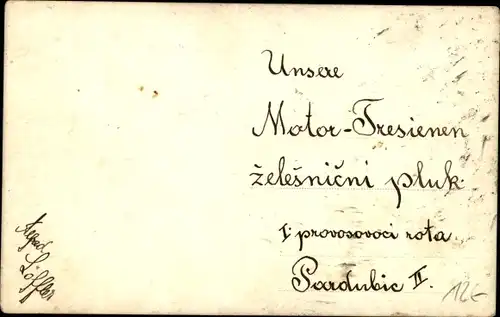 Unsere
Motor-Tresienen
želešniční pluk
I. provosovoci rota.
Pardubic II.
Löffler
12€